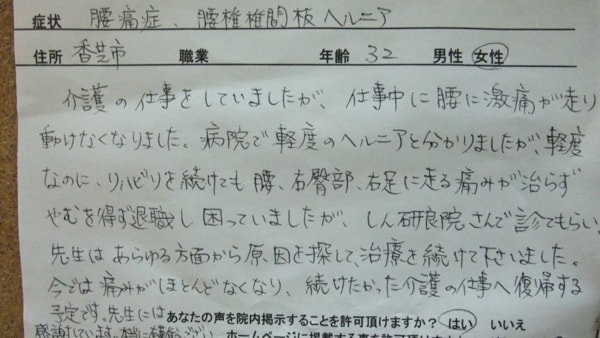 症状 腰痛症、腰椎椎間板ヘルニア
住所 香芝市 職業 年齢 32 男性 女性
介護の仕事をしていましたが、仕事中に腰に激痛が走り
動けなくなりました。病院で軽度のヘルニアと分かりましたが、軽度
なのに、リハビリを続けても腰、右臀部、右足に走る痛みが治らず
やむを得ず退職し困っていましたが、しん研良院さんで診てもらい、
先生はあらゆる方面から原因を探して、治療を続けて下さいました。
今では痛みがほとんどなくなり、続けたかった介護の仕事へ復帰する
予定です。先生には
あなたの声を院内掲示することを許可頂けますか? はい いいえ
感謝しています。本当に
ホームページに掲載する事を許可頂けますか?